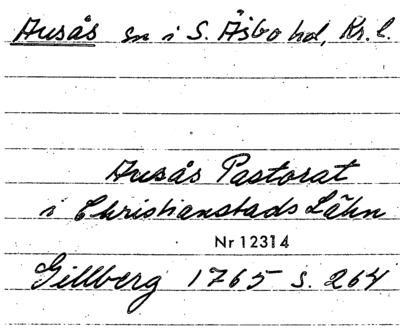 Ausås sn i S. Åsbo hd, Kr. l.
Ausås Pastorat
i Christianstads Lähn
Nr 12314
Gillberg 1765 s. 264